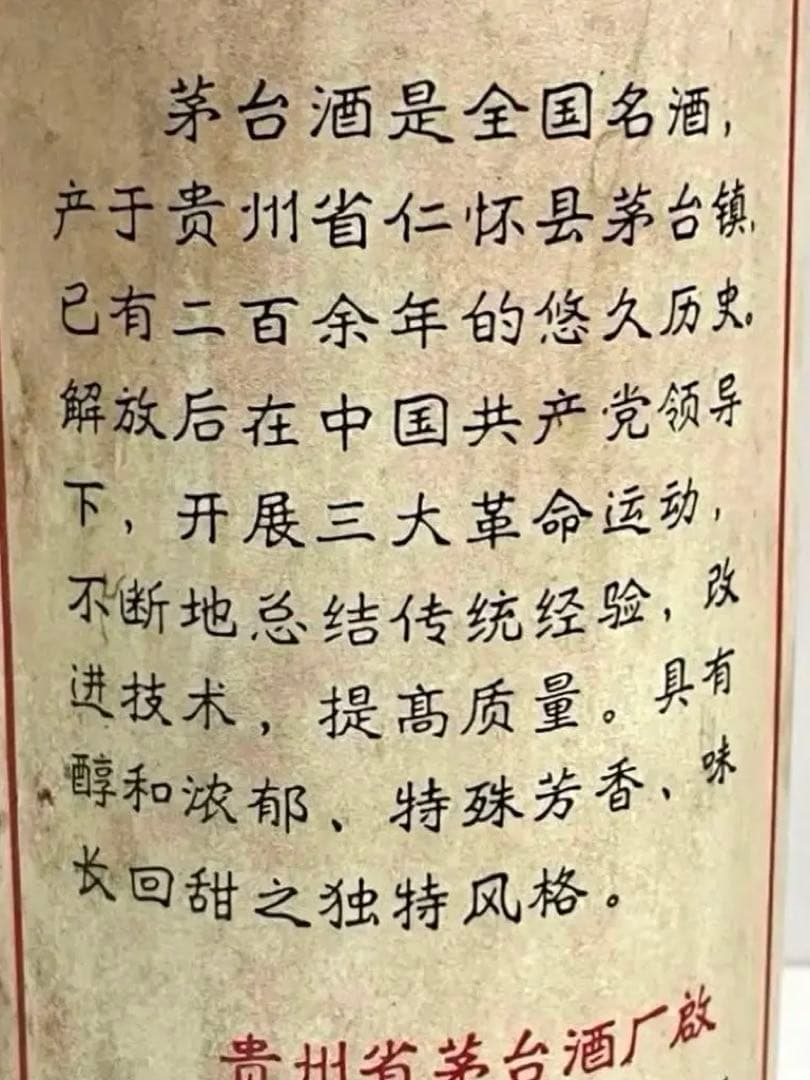 茅台酒是全国名酒，
产于贵州省仁怀县茅台镇，
已有二百余年的悠久历史。
解放后在中国共产党领导
下，开展三大革命运动，
不断地总结传统经验，改
进技术，提高质量。具有
醇和浓郁、特殊芳香、味
长回甜之独特风格。
贵州省茅台酒厂啟